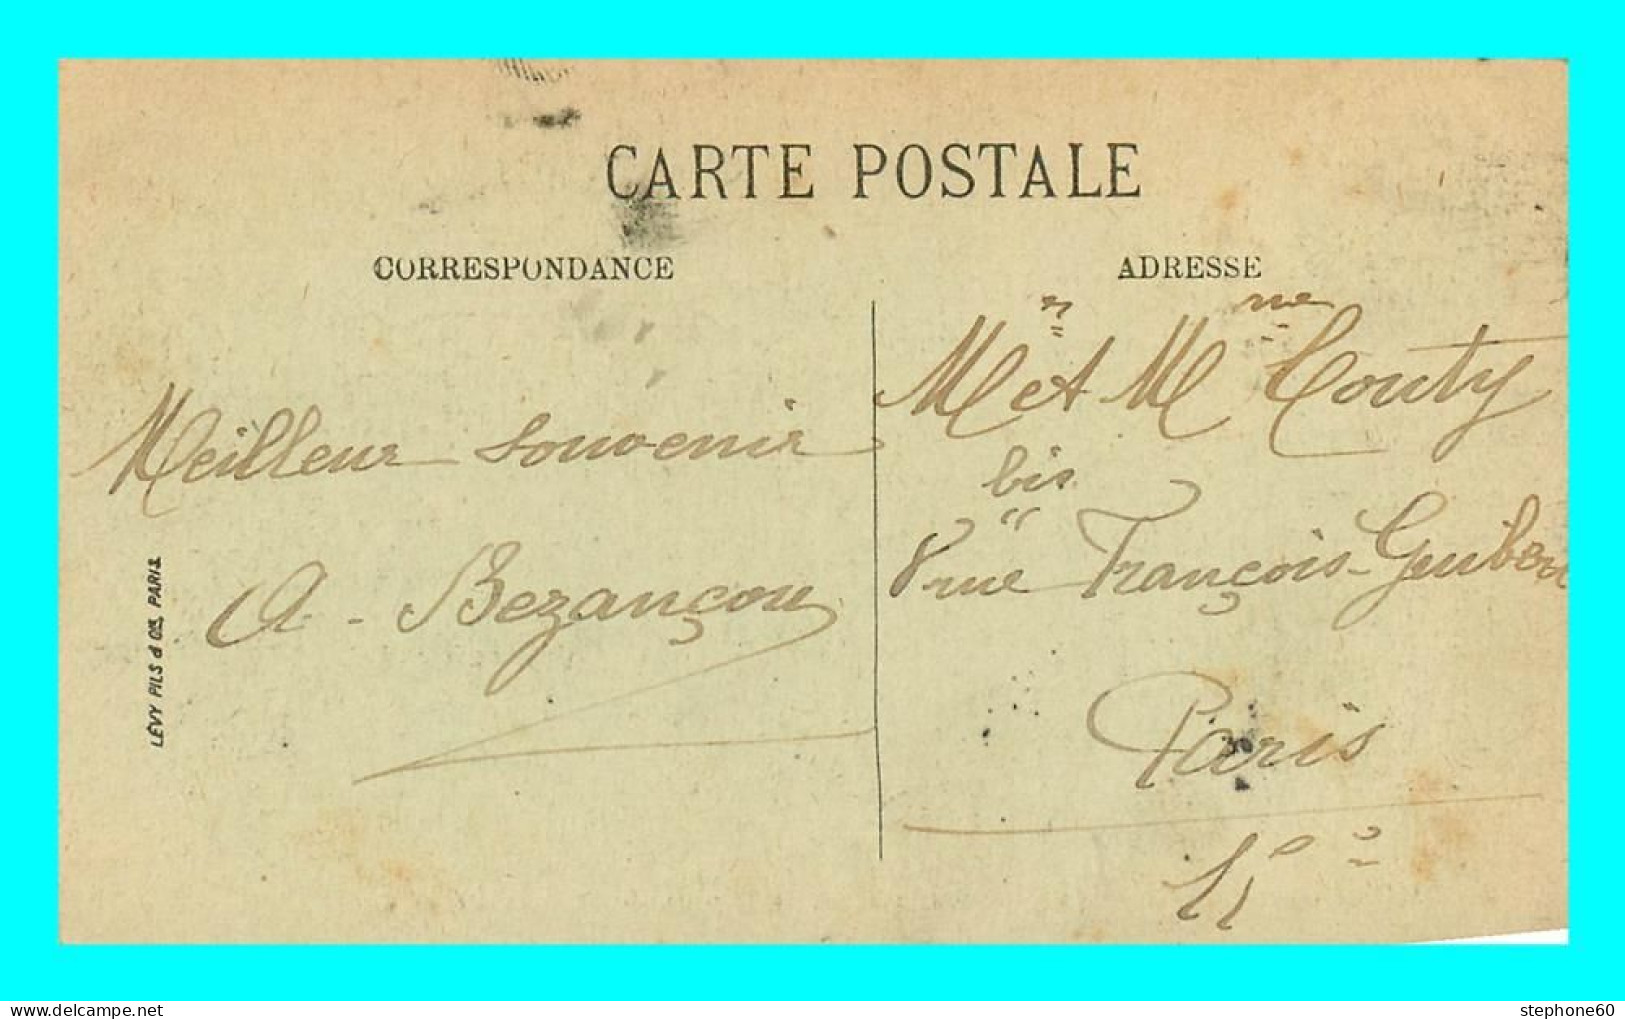 CARTE POSTALE
CORRESPONDANCE
Meilleur souvenir
A. Bezançon
LÉVY FILS & Cie, PARIS
ADRESSE
Mr et Mme Couty
8 bis rue François-Guibert
Paris
15e
delcampe.net
stephone60